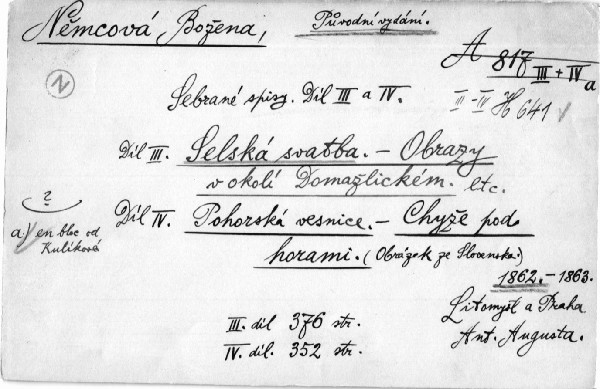 Němcová Božena,
Původní vydání.
A 817 III + IV a
III-IV H 641
N
Sebrané spisy. Díl III a IV.
Díl III. Selská svatba. – Obrazy
v okolí Domažlickém. etc.
?
a) en bloc od
Kuliková
Díl IV. Pohorská vesnice. – Chyže pod
horami. (Obrázek ze Slovenska.)
1862. – 1863.
Litomyšl a Praha
Ant. Augusta.
III. díl 376 str.
IV. díl. 352 str.